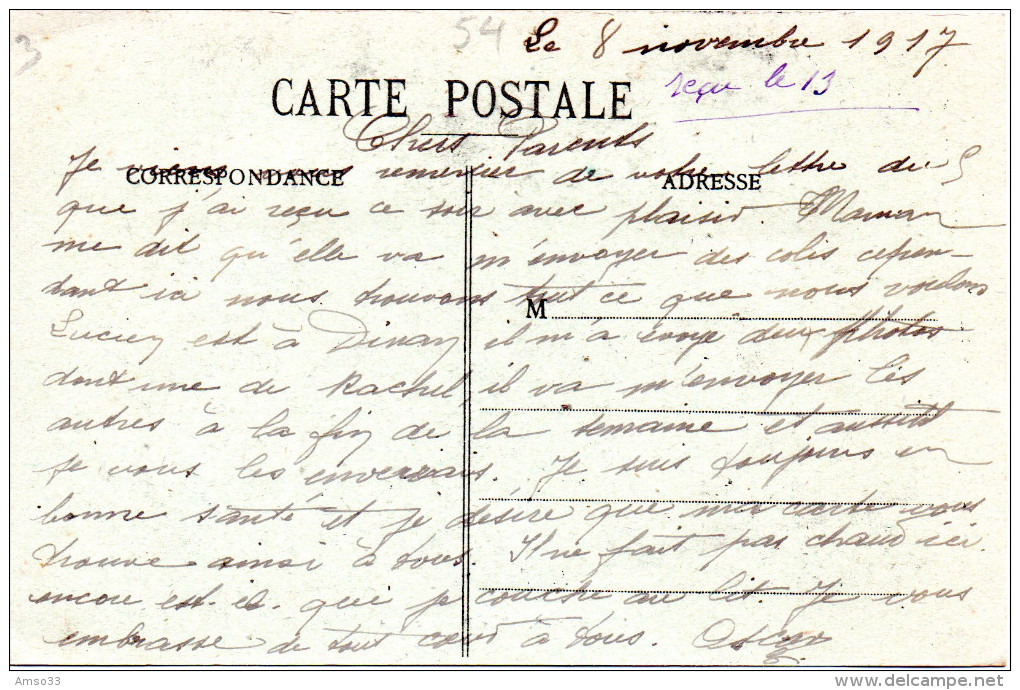 3
54
Le 8 novembre 1917
reçu le 13
CARTE POSTALE
Chers Parents
CORRESPONDANCE
ADRESSE
Je viens vous remercier de votre lettre du 5
que j'ai reçu ce soir avec plaisir. Maman
me dit qu'elle va m'envoyer des colis cepen-
dant ici nous trouvons tout ce que nous voulons
M
Lucien est à Dinan il m'a envoyé deux photos
dont une de Rachel, il va m'envoyer les
autres à la fin de la semaine et aussitôt
je vous les enverrais. Je suis toujours en
bonne santé et je désire que ma carte vous
trouve ainsi à tous. Il ne fait pas chaud ici.
encore est-ce que je couche au lit. Je vous
embrasse de tout cœur à tous. Oscar
Amso33
delcampe.net